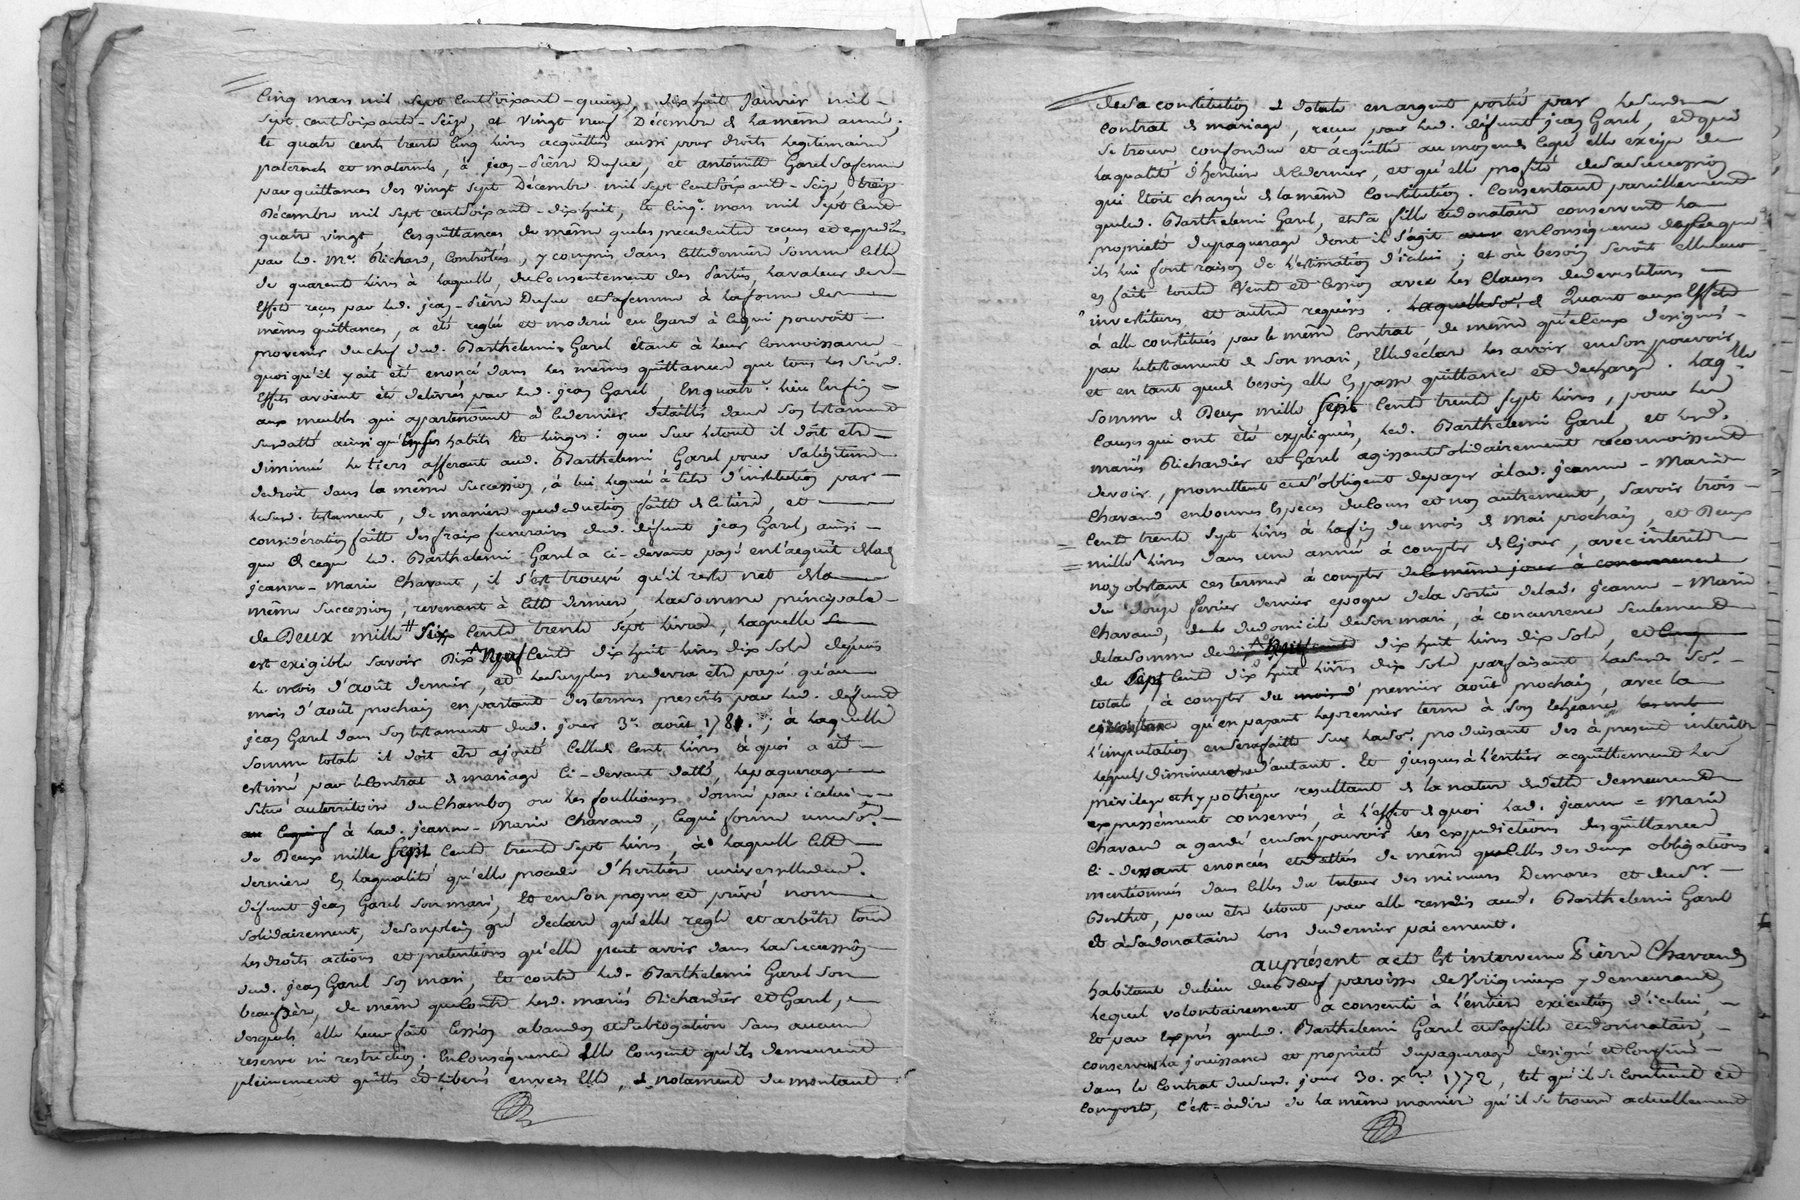 Cinq mars mil sept cent soixant-quinze, dix huit Janvier mil
sept cent soixante-seize, et vingt neuf Décembre de la même année,
et quatre cents trente cinq livres acquittées aussi pour droits legitimaires
paternels et maternels, à jean-pierre Dufue, et antoinette Garel sa femme
par quittances des vingt sept Décembre mil sept cent soixante-seize, treize
Décembre mil sept cent soixante-dix huit, et cinq mars mil sept cent
quatre vingt, les quittances de même que les precedentes recues et expediées
par led. Me. Richard, Controllées, y compris dans cette derniere somme celle
de quarente livres à laquelle, du Consentement des Parties, la valeur des
Effets reçus par led. jean-pierre Dufue et sa femme à la forme des
mêmes quittances, a été reglé et moderé eu Egard à ce qui pouvoit
provenir du chef dud. Barthelemi Garel étant à leur connoissance
quoiqu'il y ait été enoncé dans les mêmes quittances que tous les susd.
Effets avoient été delivrés par led. jean Garel, En quatre. lieu Enfin
aux meubles qui appartenoient à ce dernier detaillés dans son testament
susdatté ainsi qu'en ses habits et linges: que sur letout il doit etre
diminué le tiers afferant aud. Barthelemi Garel pour sa légitime
de droit dans la même succession, à lui legué à titre d'institution par
led. testament, de maniere que deduction faitte de ce tiers, et
considération faitte des fraix funeraires dud. défunt jean Garel, ainsi
que de ceque led. Barthelemi Garel a ci-devant payé en l'acquit de lad.
jeanne-Marie Chavant, il s'est trouvé qu'il reste net de la
même succession, revenant à cette derniere, la somme principale
de Deux mille six cents trente sept livres, laquelle
est exigible savoir Dix Neuf cents dix huit livres dix sols depuis
le mois d'août dernier, et le surplus ne devra etre payé qu'au
mois d'août prochain en partant des termes prescrits par led. defunt
jean Garel dans son testament dud. jour 3e. août 1781.; à laquelle
somme totale il doit etre ajouté celle de cent livres à quoi a été
estimé par le Contrat de mariage ci-devant datté, le paquerage
situé au territoire du Chambon ou les foullouses donné par icelui
à lad. jeanne-Marie Chavand, ce qui forme une so.
de Deux mille sept cents trente sept livres, à laquelle cette
derniere en la qualité qu'elle procede d'heritiere universelle dud.
défunt jean Garel son mari, et en son propre et privé nom
solidairement, de son plein gré declare qu'elle regle et arbitre tous
les droits actions et pretentions qu'elle peut avoir dans la succession
dud. jean Garel son mari, et contre led. Barthelemi Garel son
beaupère, de même que contre lesd. mariés Richardier et Garel,
desquels elle leur fait cession abandon et subrogation sans aucune
reserve ni restriction: En Conséquence Elle Consent qu'ils demeurent
pleinement quittes et liberés envers Elle, & notament du montant
de sa constitution & dotale en argent porté par le susd.
contrat de mariage, recue par led. défunt jean Garel, et qui
se trouve confondue et acquittée au moyen de ce qu'elle exerce
la qualité d'heritiere de ce dernier, et qu'elle profite de sa succession
qui etoit chargée de la même constitution. Consentant pareillement
que led. Barthelemi Garel, et sa fille et donataire conservent la
propriété du paquerage dont il s'agit en conséquence de ce que
ils lui font raison de l'estimation d'icelui; et où besoin seroit elle leur
en fait toute vente et cession avec les clauses de devestitures
investitures et autres requises. Quant aux Effets
à elle constitués par le même contrat de même qu'à ceux designés
par le testament de son mari, Elle declare les avoir en son pouvoir
et en tant que de besoin elle en passe quittance et decharge. Laqlle
somme de Deux mille sept cents trente sept livres, pour les
causes qui ont été expliquées, led. Barthelemi Garel, et lesd.
mariés Richardier et Garel agissant solidairement reconnoissent
devoir, promettent et s'obligent de payer à lad. jeanne-Marie
Chavand en bonnes Especes du cours et non autrement, savoir trois
cents trente sept livres à la fin du mois de mai prochain, et Deux
mille livres dans une année à compter de ce jour, avec intérets
nonobstant ces termes à compter de le même jour à concurrence
du douze fevrier dernier epoque de la sortie de lad. jeanne-Marie
Chavand, du domicile de son mari, à concurrence seulement
de la somme de dix huit livres dix sols, et
de sept cents dix huit livres dix sols parfaisant la susd. so.
total à compter du premier août prochain, avec la
circonstance qu'en payant le premier terme à son Echeance
l'imputation en sera faitte sur la so. produisant dès à present intérêts
lequel diminuera d'autant. Et jusques à l'entier acquittement les
privilege et hypothéque resultant de la nature de dette demeurent
expressément conservés, à l'effet de quoi lad. jeanne-Marie
Chavand a gardé en son pouvoir les expeditions des quittances
ci-devant enoncées et dattées de même que celles des deux obligations
mentionnées dans celles du tuteur des mineurs Demares et du sr.
Berthet, pour etre letout par elle remis aud. Barthelemi Garel
et à sa donataire lors du dernier paiement.
au présent acte Est intervenu Pierre Chavand
habitant du lieu paroisse de Virigneux y demeurant,
lequel volontairement a consenti à l'entiere exécution d'icelui
et par Exprès que led. Barthelemi Garel et sa fille et donnataire,
conservent la jouissance et propriété du paquerage designé et confiné
dans le Contrat dud. jour 30. xbre 1772, tel qu'il se contient et
comporte, c'est-à-dire de la même maniere qu'il se trouve actuellement